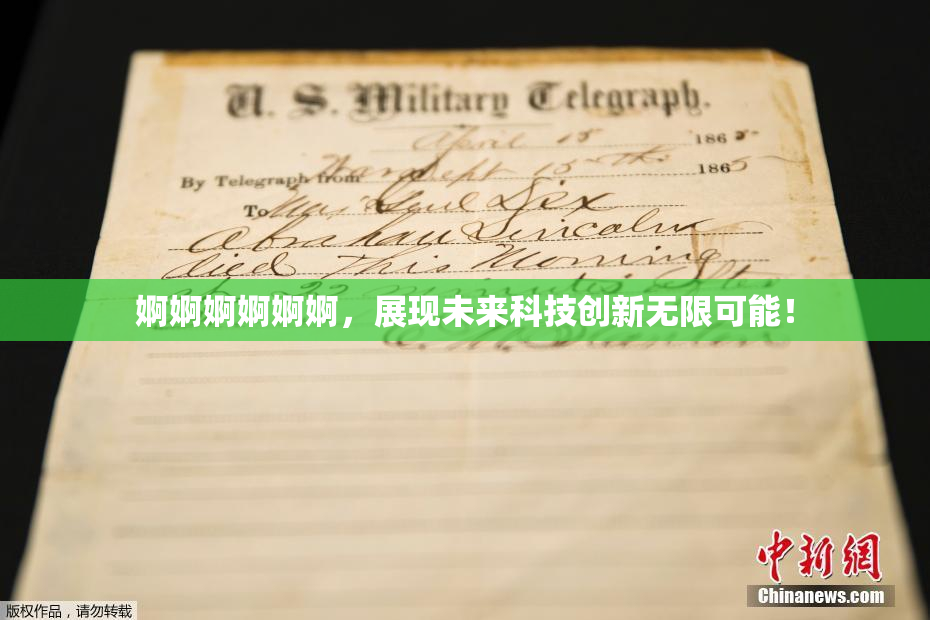 U. S. Military Telegraph.
April 15 1865
By Telegraph from War Dept 15th 1865
To Maj Genl Dix
Abraham Lincoln
died This Morning
22 minutes After
婀婀婀婀婀婀，展现未来科技创新无限可能！
中新网
Chinanews.com
版权作品，请勿转载